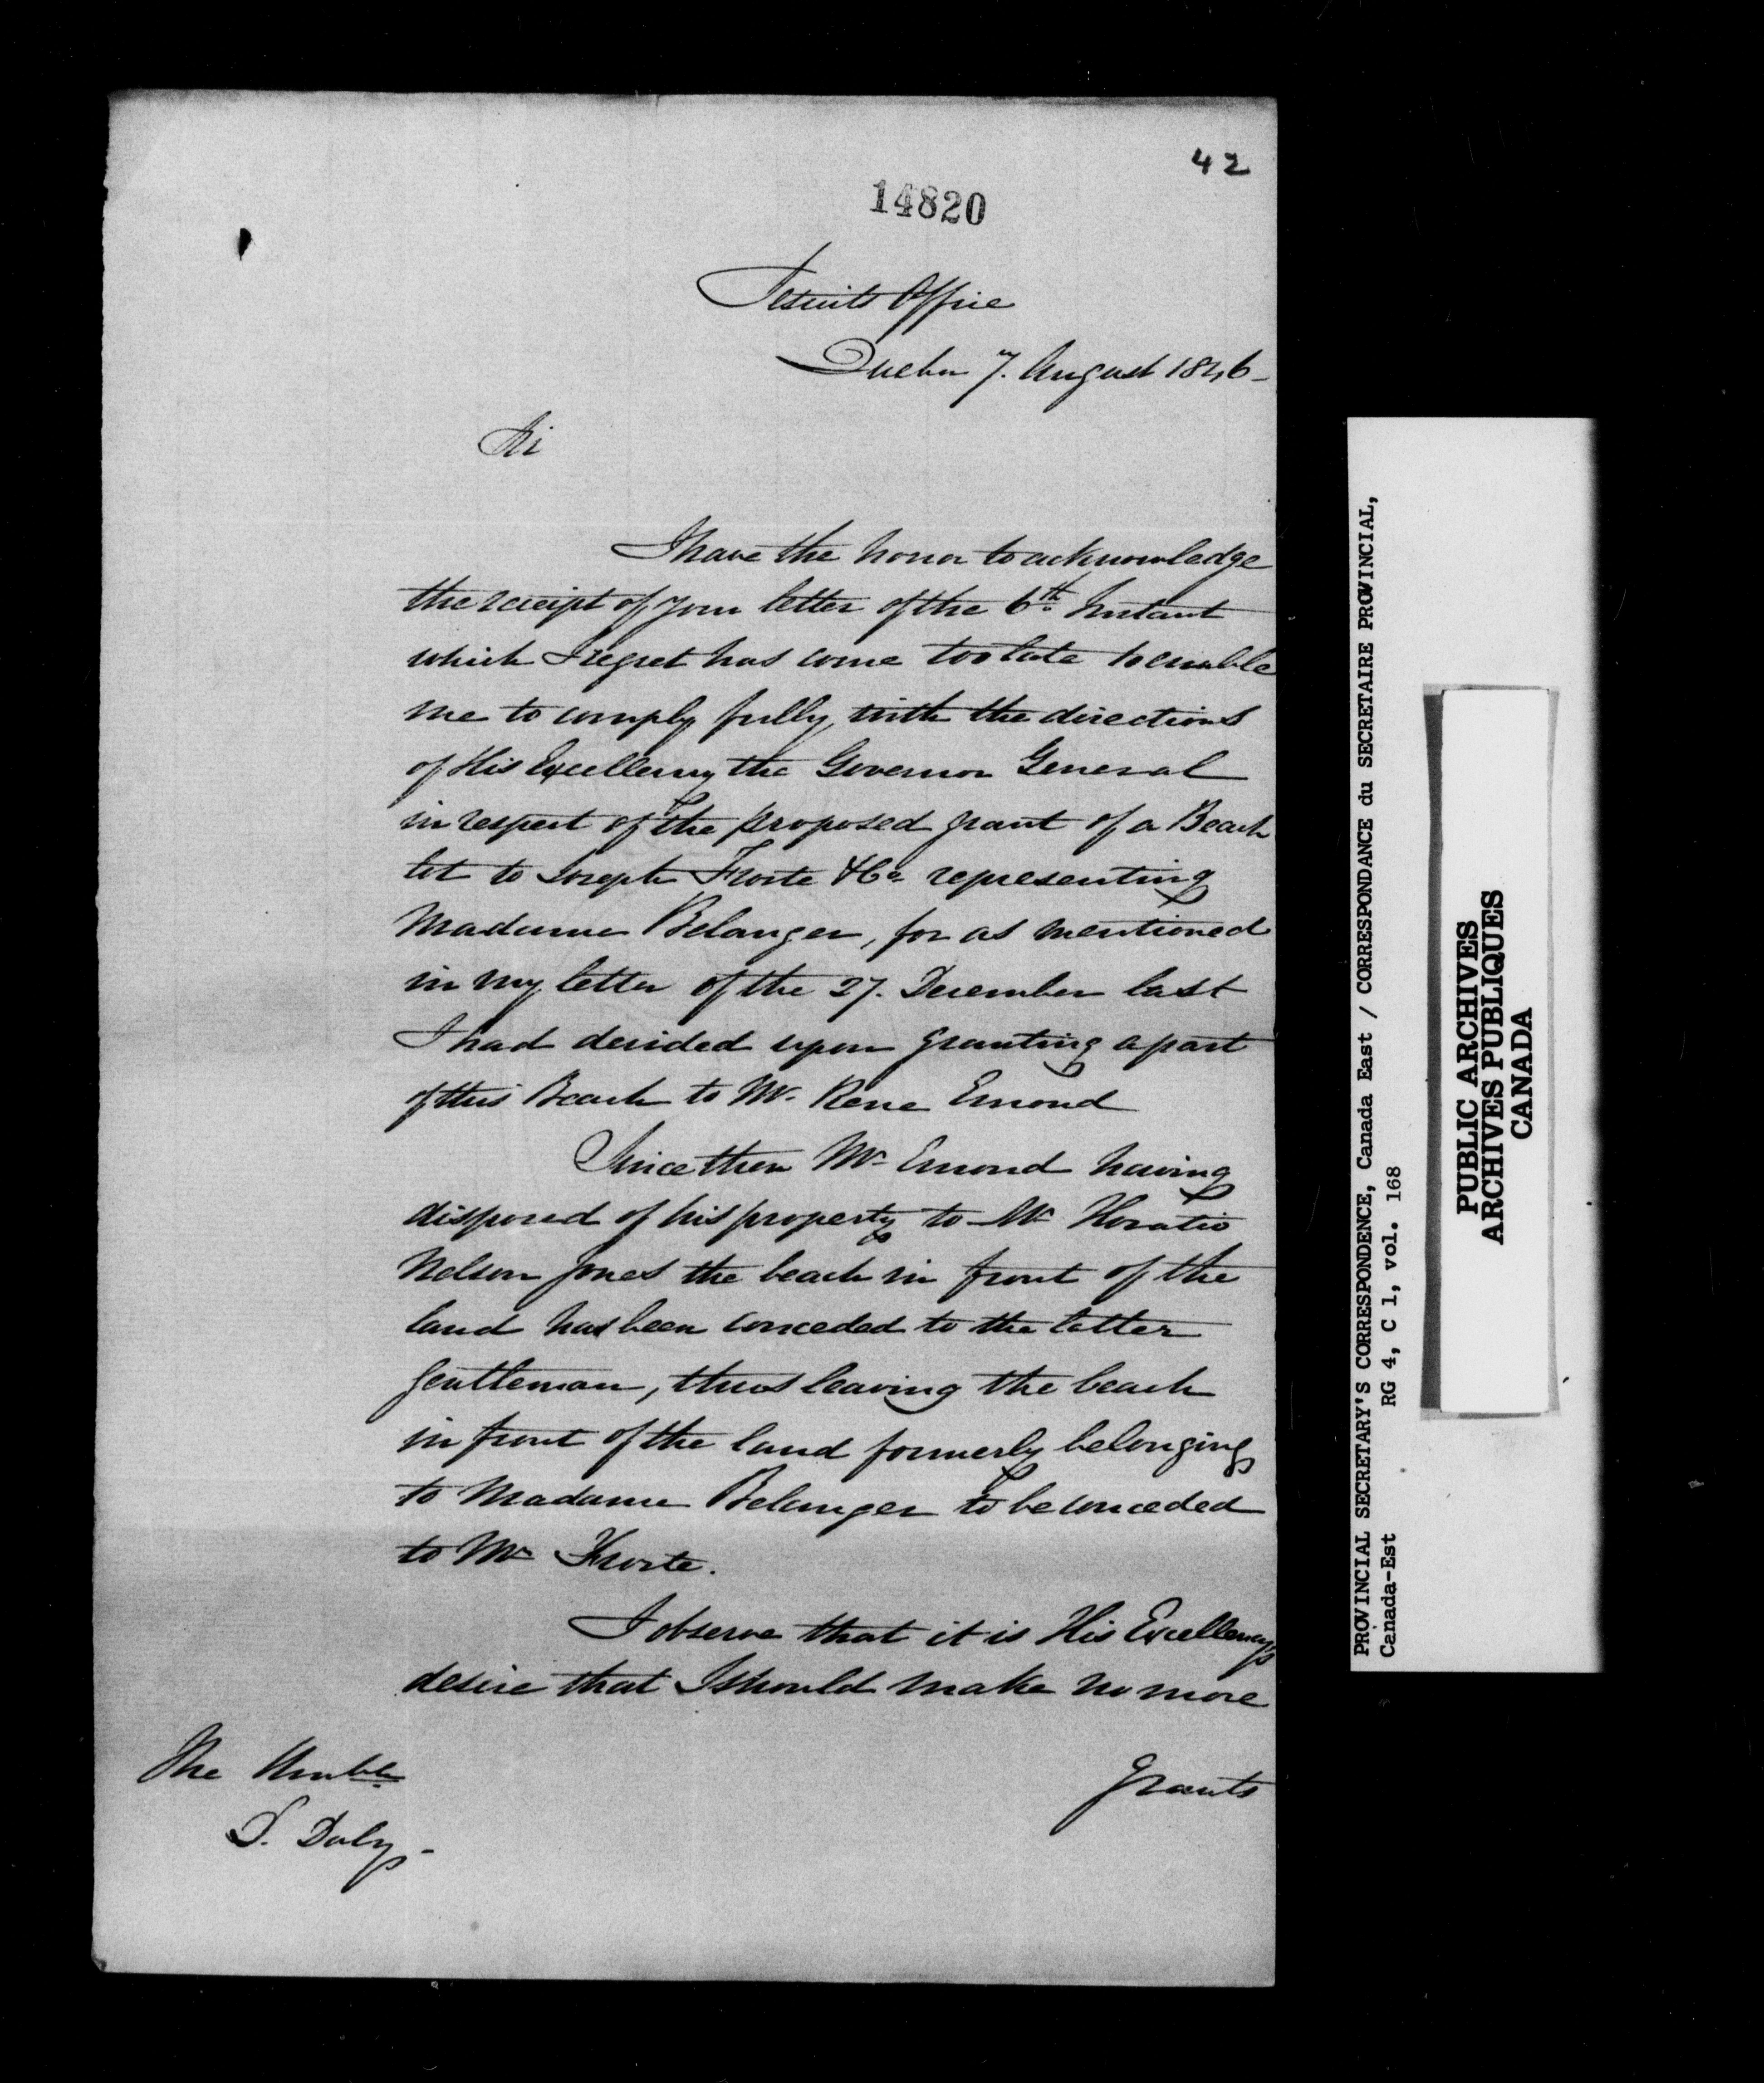 42
14820
Jesuits Office
Quebec 7. August 1846-
Sir
I have the honor to acknowledge
the receipt of your letter of the 6th Instant
which I regret has come too late to enable
me to comply fully, with the directions
of His Excellency the Governor General
in respect of the proposed grant of a Beach
lot to Joseph Froste & Co representing
Madame Belanger, for as mentioned
in my letter of the 27. December last
I had decided upon granting a part
of this Beach to Mr. Rene Emond
Since then Mr Emond having
disposed of his property to Mr Horatio
Nelson Jones the beach in front of the
land has been conceded to the latter
gentleman, thus leaving the beach
in front of the land formerly belonging
to Madame Belanger to be conceded
to Mr Froste.
I observe that it is His Excellency's
desire that I should make no more
grants
The Honble
D. Daly-
PROVINCIAL SECRETARY'S CORRESPONDENCE, Canada East / CORRESPONDANCE du SECRETAIRE PROVINCIAL,
Canada-Est RG 4, C 1, vol. 168
PUBLIC ARCHIVES
ARCHIVES PUBLIQUES
CANADA